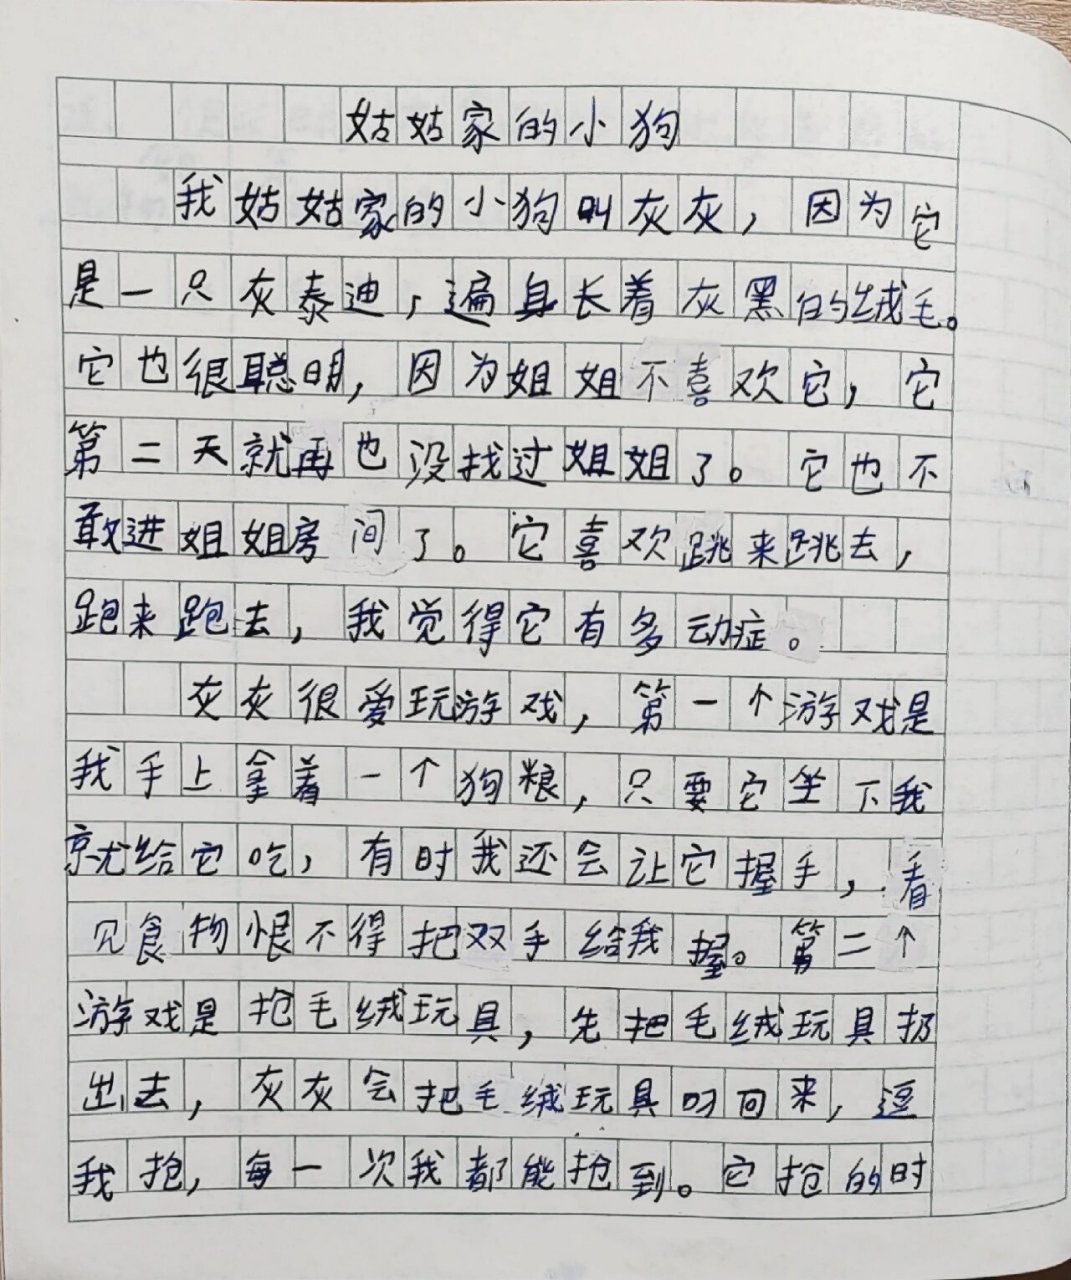 姑姑家的小狗
我姑姑家的小狗叫灰灰，因为它
是一只灰泰迪，遍身长着灰黑的绒毛。
它也很聪明，因为姐姐不喜欢它，它
第二天就再也没找过姐姐了。它也不
敢进姐姐房间了。它喜欢跳来跳去，
跑来跑去，我觉得它有多动症。
灰灰很爱玩游戏，第一个游戏是
我手上拿着一个狗粮，只要它坐下我
就给它吃，有时我还会让它握手，看
见食物恨不得把双手给我握。第二个
游戏是抢毛绒玩具，先把毛绒玩具扔
出去，灰灰会把毛绒玩具叼回来，逗
我抢，每一次我都能抢到。它抢的时